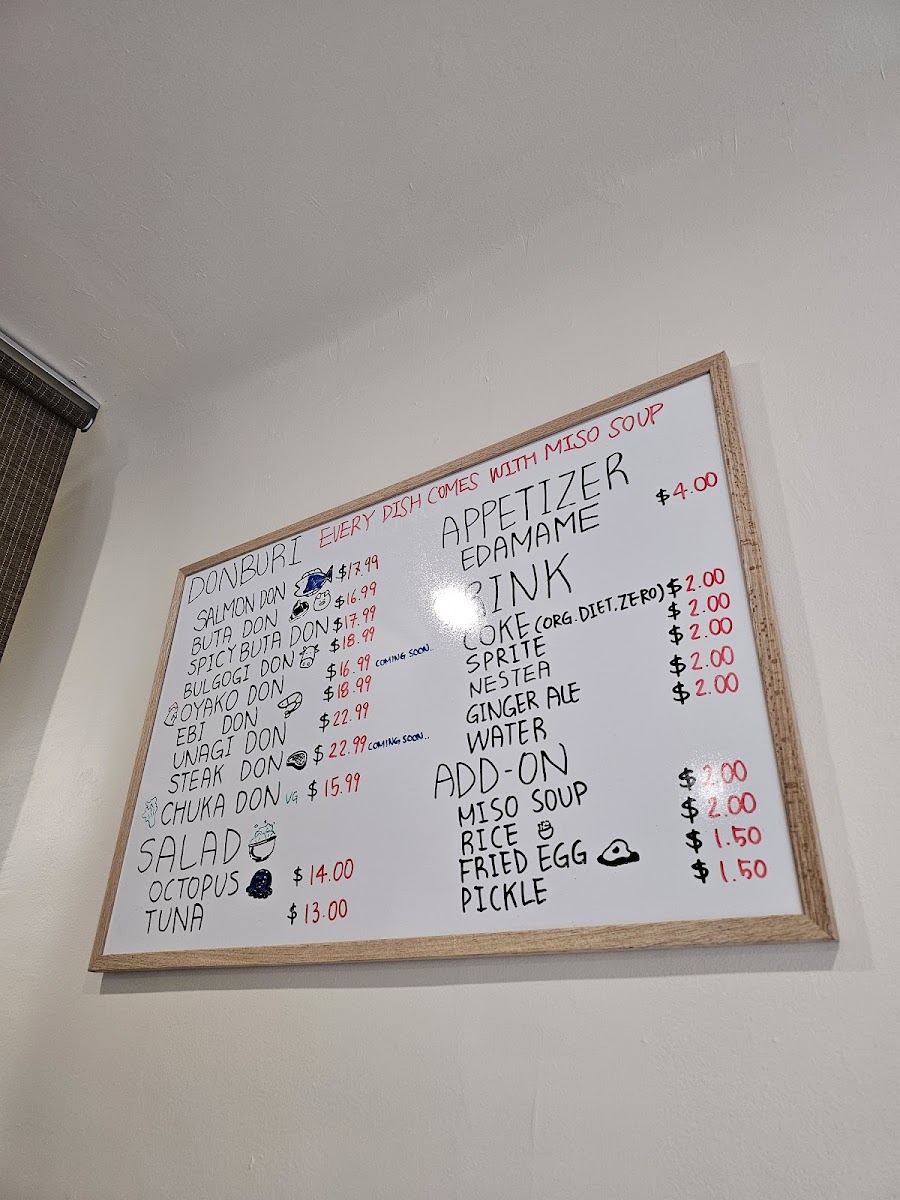 EVERY DISH COMES WITH MISO SOUP
DONBURI
SALMON DON $17.99
BUTA DON $16.99
SPICY BUTA DON $17.99
BULGOGI DON $18.99
OYAKO DON $16.99 COMING SOON..
EBI DON $18.99
UNAGI DON $22.99
STEAK DON $22.99 COMING SOON..
CHUKA DON VG $15.99
SALAD
OCTOPUS $14.00
TUNA $13.00
APPETIZER
EDAMAME $4.00
DRINK
COKE (ORG.DIET.ZERO) $2.00
SPRITE $2.00
NESTEA $2.00
GINGER ALE $2.00
WATER $2.00
ADD-ON
MISO SOUP $2.00
RICE $2.00
FRIED EGG $1.50
PICKLE $1.50